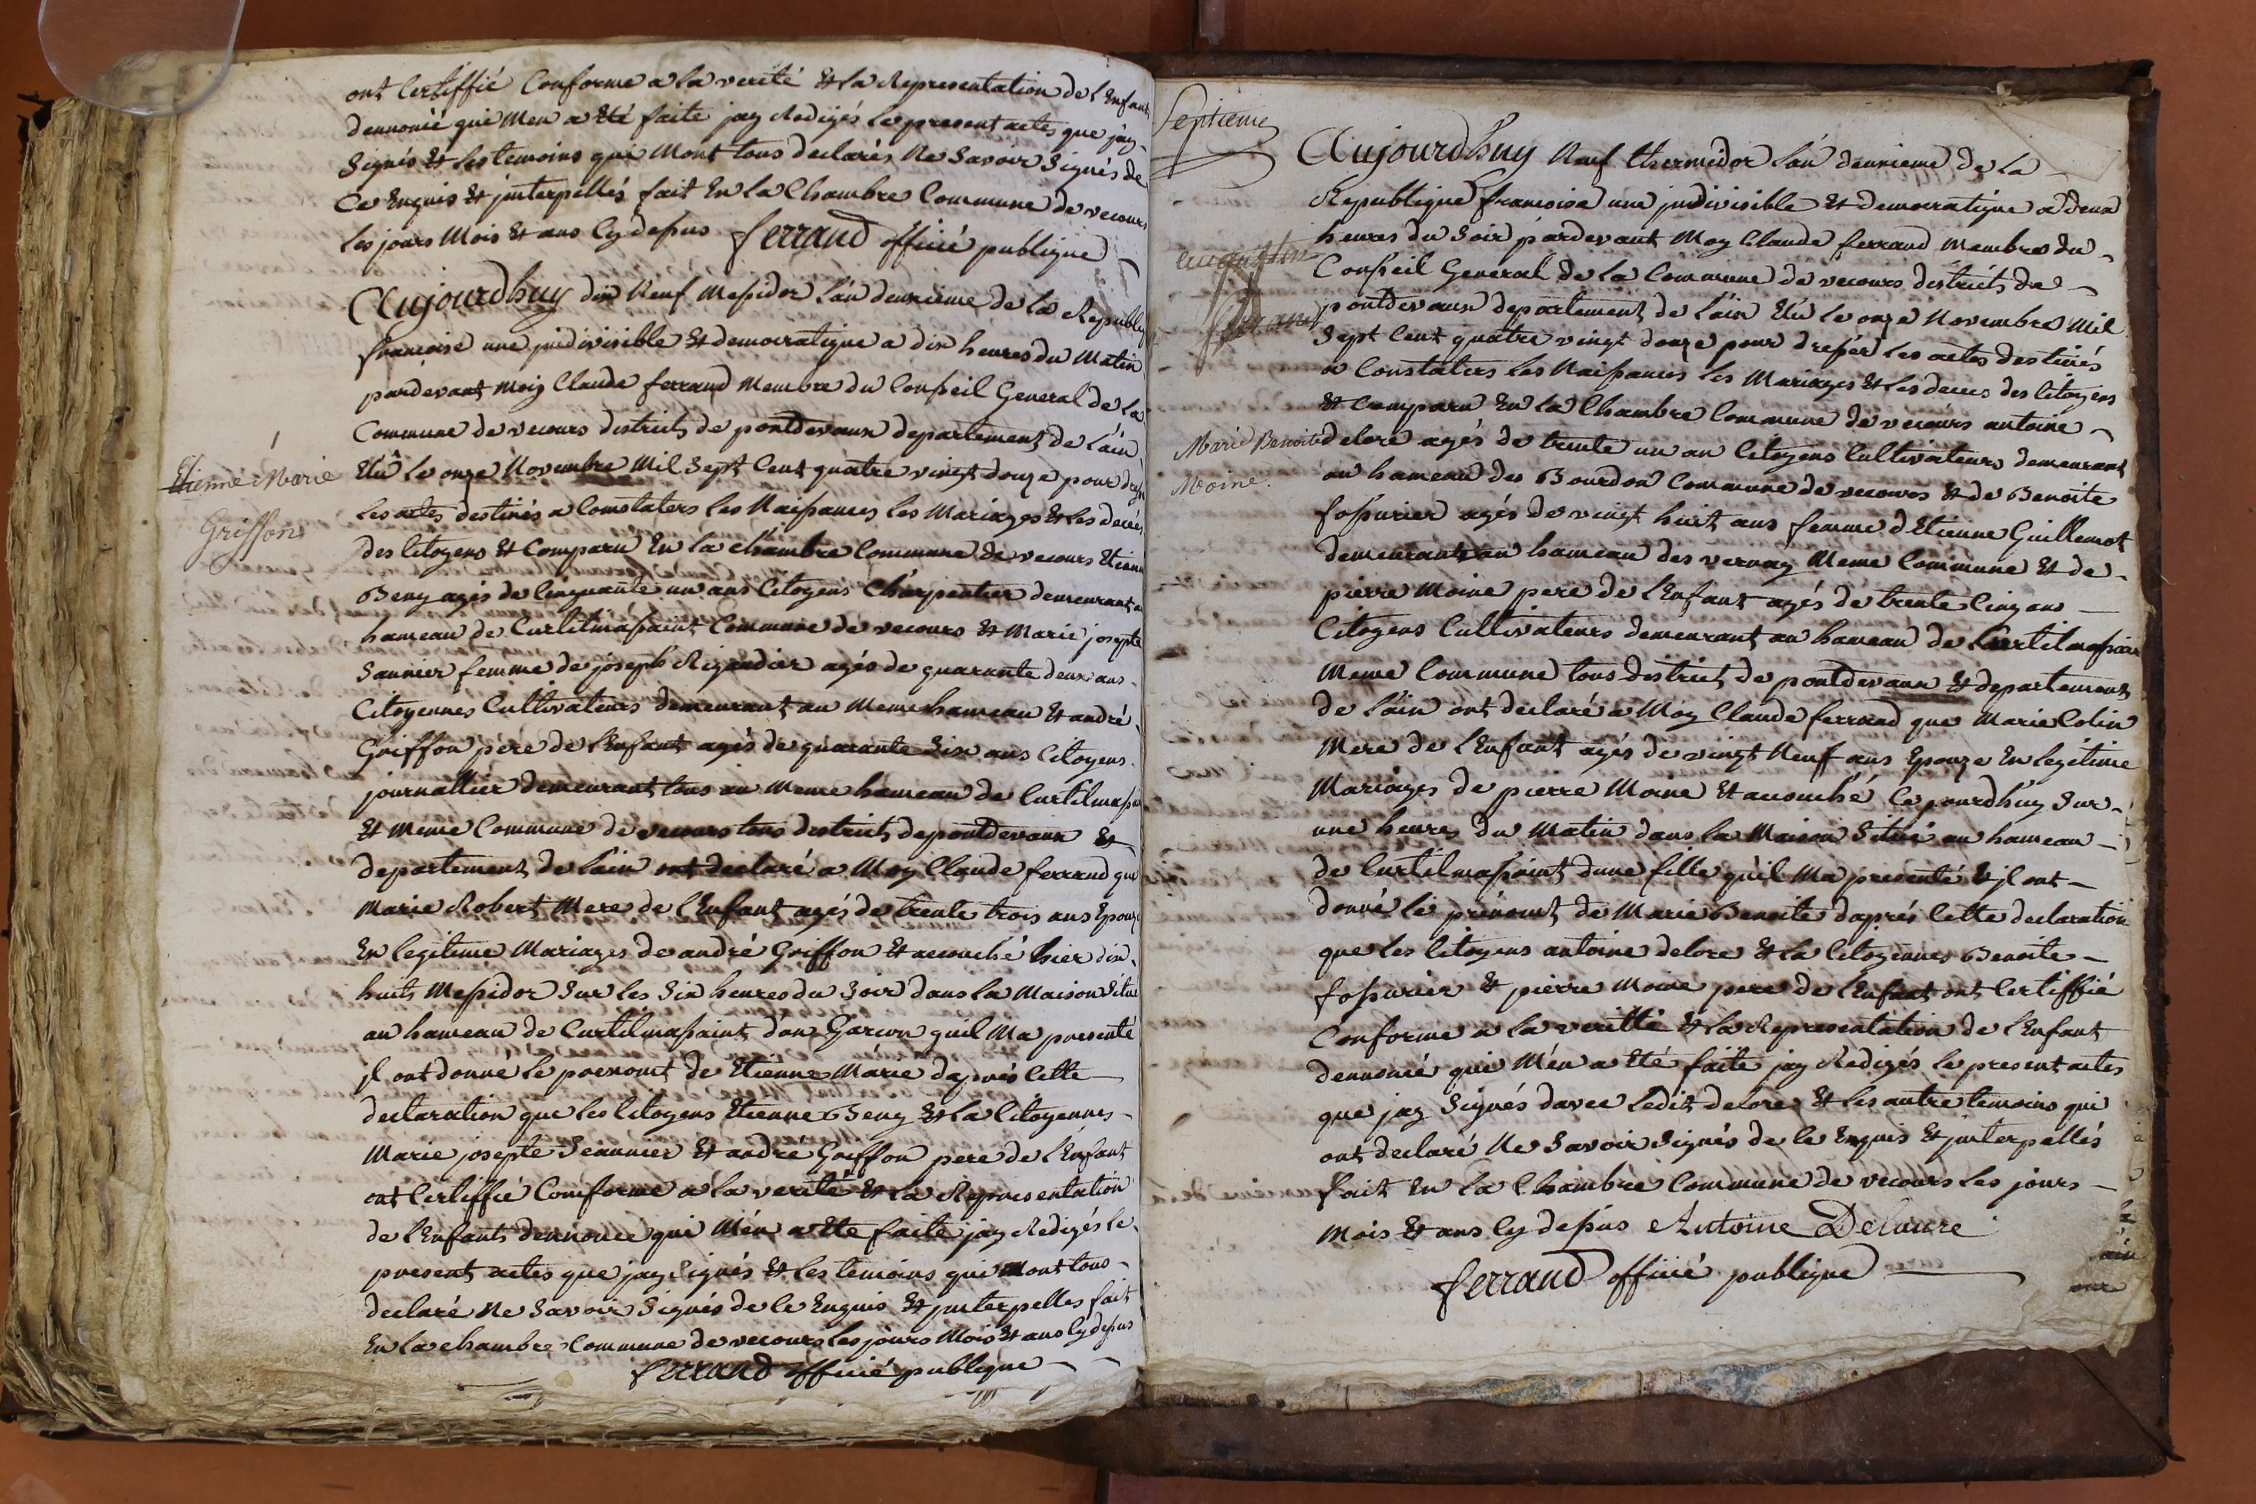 ont Certiffié Conforme a la verité & la Representation de l'Enfant
dennoncé qui Men a Eté faite jay Redigés le present actes que jay
Signés & les temoins qui Mont tous declarés Ne Savoir Signés de
Ce Enquis & jnterpellés fait En la Chambre Commune de vecours
les jours Mois & ans Cy dessus ferrand officié publique
Aujourdhuy dix Neuf Messidor l'an deuxieme de la Republiq
francoise une jndivisible & democratique a dix heures du Matin
pardevant Moy Claude ferrand Membre du Conseil General de la
Commune de vecours districts de pontdevaux departement de l'ain
Etienne Marie
Griffon
Elû le onze Novembre Mil Sept Cent quatre vingt douze pour
les actes destinés a Constaters les Naissances les Mariages & les decés
des Citoyens & Comparu En la chambre Commune de vecours Etienne
Beny agés de Cinquante un ans Citoyens Charpentier demeurant a
hameau de Curtilmassaint Commune de vecours & Marie josepte
Saunier femme de joseph Rigaudier agés de quarante deux ans
Citoyennes Cultivateurs demeurant au Meme hameau & andré
Griffon pére de l'Enfant agés de quarante Six ans Citoyens
journallier demeurant tous au Meme hameau de Curtilmass
& Meme Commune de vecours tous districts de pontdevaux &
departement de l'ain ont declaré a Moy Claude ferrand que
Marie Robert Mere de l'Enfant agés de trente trois ans Epouze
En legitime Mariages de andré Griffon & accouché hier dix
huits Messidor Sur les Six heures du Soir dans la Maison Situé
au hameau de Curtilmassaint d'un Garcon quil Ma presenté
jl ont donné le prenomt de Etienne Marie daprés Cette
declaration que les Citoyens Etienne Beny & la Citoyennes
Marie josepte Seaunier & andré Griffon pere de l'Enfant
ont Certiffié Comforme a la verité & la Representation
de l'Enfants dennonce qui Mén a Eté faite jay Redigés le
present actes que jay Signés & les temoins qui Mont tous
declaré Ne Savoir Signés de Ce Enquis & jnterpelles fait
En la chambre Commune de vecours les jours Mois & ans Cy dessus
ferrand officié publique
Septieme
Aujourdhuy Neuf thermidor l'an deuxieme de la
Republique francoise une jndivisible & democratique a deux
heures du Soir pardevant Moy Claude ferrand Membres du
Conseil General de la Commune de vecours districts de
pontdevaux departement de l'ain Elû le onze Novembre Mil
Sept Cent quatre vingt douze pour dresser les actes destinés
a Constaters les Naissances les Mariages & les deces des Citoyens
& Comparu En la Chambre Commune de vecours antoine
Marie Benoite
Moine.
delore agés de trente un an Citoyens Cultivateurs demeurant
au hameau des Bourdon Commune de vecours & de Benoite
fossurier agés de vingt huit ans femme d'Etienne Guillemot
demeurante au hameau des vernay Meme Commune & de
pierre Moine pere de l'Enfant agés de trente Cinq ans
Citoyens Cultivateurs demeurant au hameau de Curtilmassain
Meme Commune tous districts de pontdevaux & departement
de l'ain ont declaré a Moy Claude ferrand que Marie Colin
Mere de l'Enfant agés de vingt Neuf ans Epouze En legitime
Mariages de pierre Moine & accouché Ce jourdhuy Sur
une heures du Matin dans la Maison Situé au hameau
de Curtilmassaint dune fille quil Ma presenté & jl ont
donné le prénomt de Marie Benoite daprés Cette declaration
que les Citoyens antoine delore & la Citoyennes Benoite
fossurier & pierre Moine pere de l'Enfant ont Certiffié
Conforme a la veritté & la Representation de l'Enfant
dennoncé qui Mén a Eté faite jay Redigés le present actes
que jay Signés davec ledit delores & les autre temoins qui
ont declaré Ne Savoir Signés de Ce Enquis & jnterpellés
fait En la Chambre Commune de vecours les jours
Mois & ans Cy dessus Antoine Delaure
ferrand officié publique